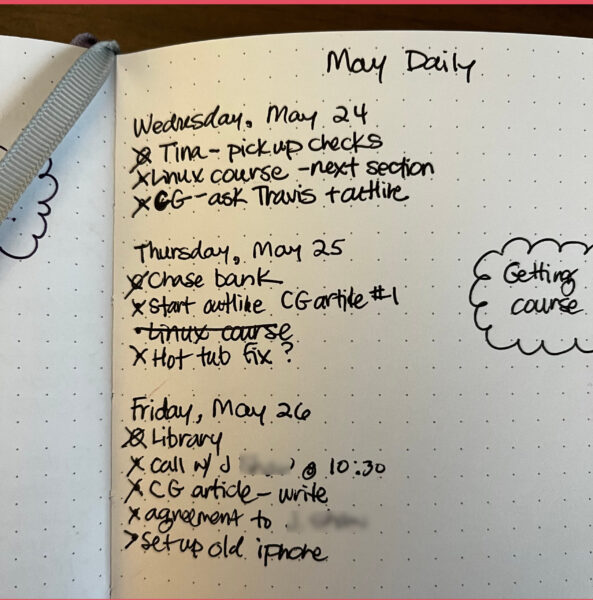 May Daily
Wednesday, May 24
Tina - pick up checks
Linux course - next section
CG - ask Travis + outline
Thursday, May 25
Chase bank
Start outline CG article #1
Linux course
Hot tub fix?
Friday, May 26
Library
Call w/ J @ 10:30
CG article - write
agreement to J
> Set up old iphone
Getting
course